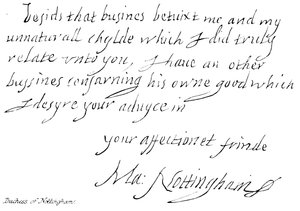 besids that busines betuixt me and my
unnaturall chylde which I did truly
relate vnto you, I haue an other
bussines consarning his owne good which
I desyre your aduyce in
your affectionet frinde
Ma: Nottingham
Duchess of Nottingham.